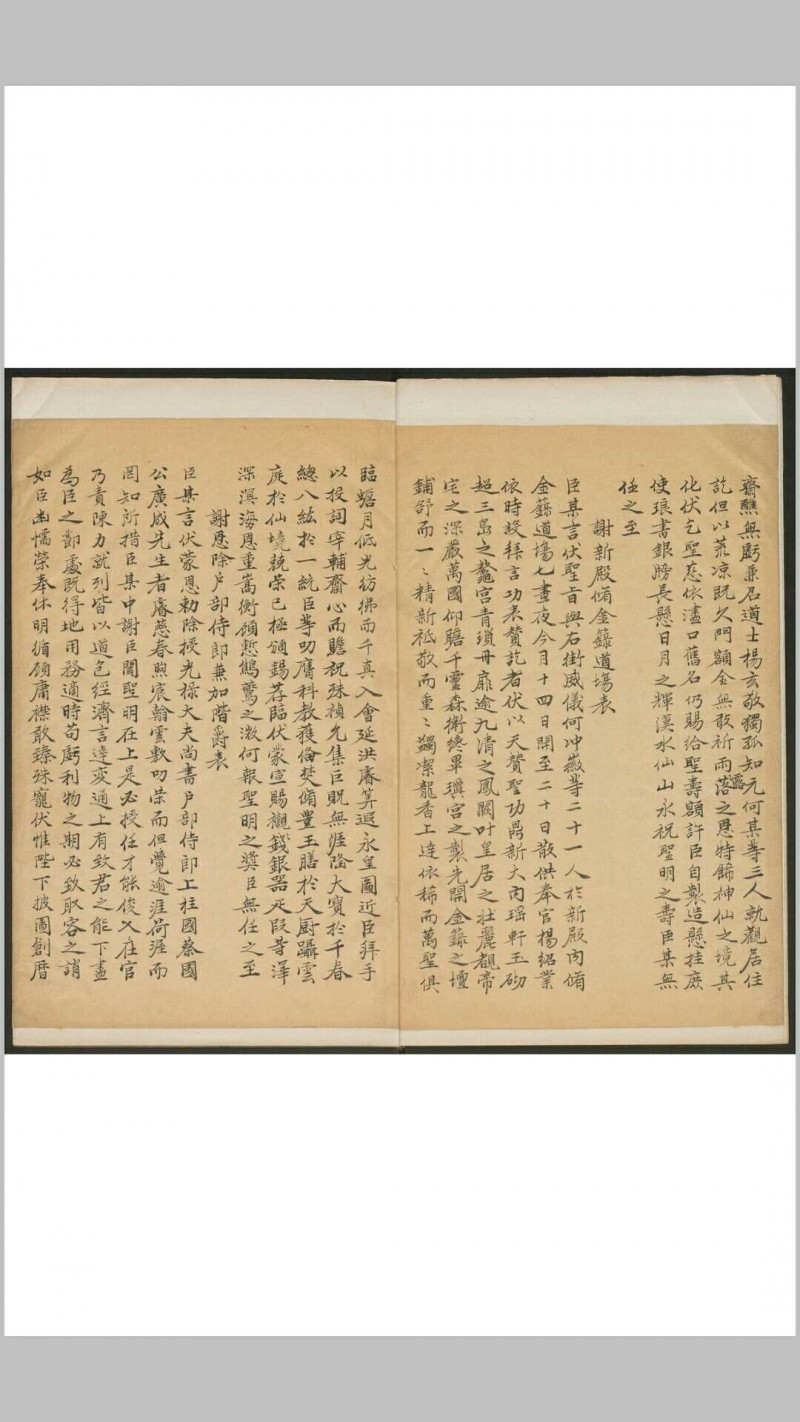 齋醮無虧兼召道士楊玄敬獨孤知元何某等三人就觀居住
訖但以荒涼既久門額全無敢祈雨露落之恩特飾神仙之境其
化伏乞聖慈依瀘口舊名仍賜給聖壽額許臣自製造懸挂庶
使琅書銀牓長懸日月之輝漢水仙山永祝聖明之壽臣某無
任之至
謝新殿修金籙道場表
臣某言伏聖旨與右街威儀何冲薇等二十一人於新殿內修
金籙道場七晝夜今月十四日開至二十日散供奉官楊紹業
依時設醮言功表贊訖者伏以天贊聖功鼎新大內瑤軒玉砌
超三島之鼇宮青瑣丹扉逾九清之鳳闕叶皇居之壯麗覩帝
宅之深嚴萬國仰瞻千靈森衛纔畢璵宮之製先開金籙之壇
鋪舒而一〻精新祗敬而重〻蠲潔龍香上達依稀而萬聖俱
臨蟾月低光彷彿而千真入會延洪睿筭遐永皇圖近臣拜手
以投詞宰輔齋心而瞻祝殊禎允集巨貺無涯隆大寶於千春
總八紘於一統臣等叨膺科教獲俻焚修豐玉膳於天廚躡雲
庭於仙境兢榮已極頒錫荐臨伏蒙宣賜襯錢銀器疋段等澤
深溟海恩重嵩衡顧慙鷦鷯之微何報聖明之奬臣無任之至
謝恩除戶部侍郎兼加階爵表
臣某言伏蒙恩勅除授光祿大夫尚書戶部侍郎上柱國蔡國
公廣成先生者睿慈春煦宸翰雲敷叨榮而但覺逾涯荷渥而
罔知所措臣某中謝臣聞聖明在上是必授任才能俊乂在官
乃責陳力就列皆以道包經濟言達变通上有致君之能下盡
為臣之節處既得地用務適時苟虧利物之期必致取容之誚
如臣幽懦榮奉休明循顧庸襟敢臻殊寵伏惟陛下披圖創曆